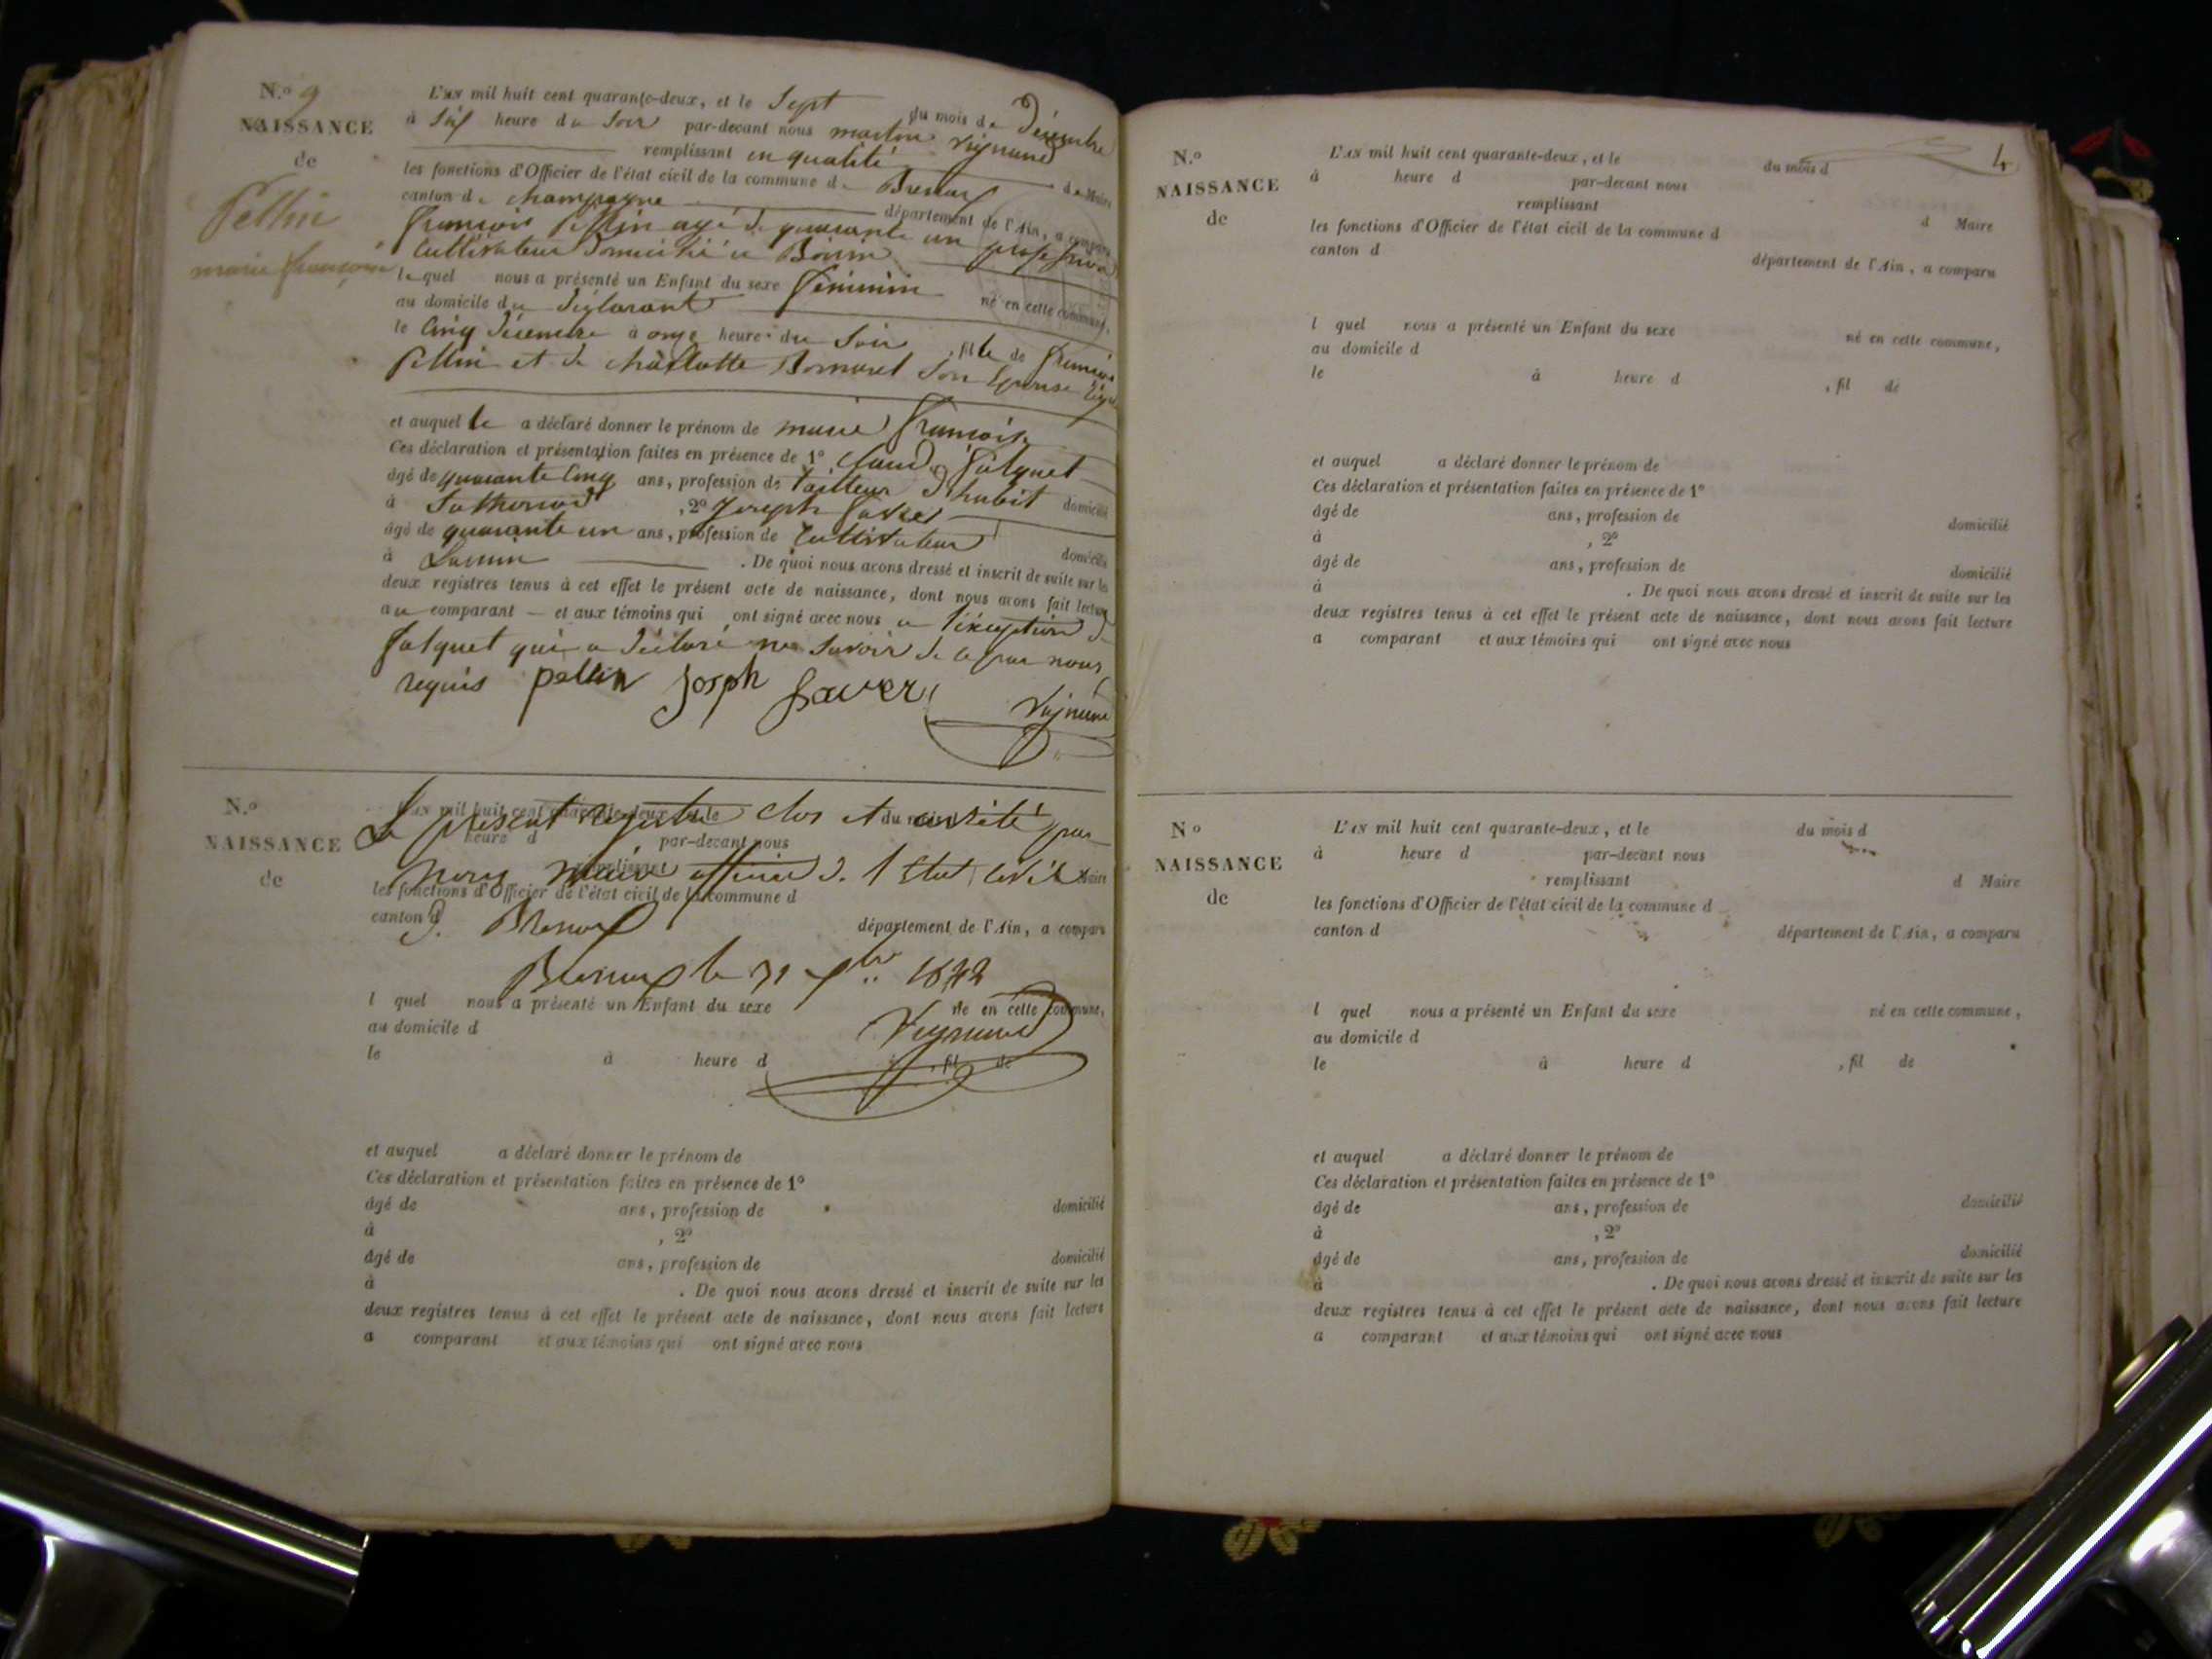 N.o 9
NAISSANCE
de
Pellin
marie françoise
L'AN mil huit cent quarante-deux, et le Sept du mois de Décembre
à Six heure du Soir par-devant nous
remplissant en qualité de Maire
les fonctions d'Officier de l'état civil de la commune de
canton de champagne département de l'Ain, a comparu
françois Pellin agé de quarante un profession
Cultivateur Domicilié à
le quel nous a présenté un Enfant du sexe féminin né en cette commune,
au domicile du déclarant
le Cinq Décembre à onze heure du Soir, fille de françois
Pellin et de charlotte son Epouse
et auquel le a déclaré donner le prénom de marie françoise
Ces déclaration et présentation faites en présence de 1o Claude falquet
âgé de quarante Cinq ans, profession de tailleur d'habit domicilié
à , 2o Joseph
âgé de quarante un ans, profession de Cultivateur domicilié
à . De quoi nous avons dressé et inscrit de suite sur les
deux registres tenus à cet effet le présent acte de naissance, dont nous avons fait lecture
au comparant — et aux témoins qui ont signé avec nous a l'éxception de
falquet qui a déclaré ne Savoir de ce par nous
requis pellin Josph
N.o
NAISSANCE
de
L'AN mil huit cent quarante-deux, et le du mois d
Le présent registre clos et arrêté par
à heure d par-devant nous
nous Maire officier de l'Etat Civil
remplissant d Maire
les fonctions d'Officier de l'état civil de la commune d
canton d département de l'Ain, a comparu
de
le 31 1842
l quel nous a présenté un Enfant du sexe né en cette commune,
au domicile d
le à heure d , fil de
et auquel a déclaré donner le prénom de
Ces déclaration et présentation faites en présence de 1o
âgé de ans, profession de domicilié
à , 2o
âgé de ans, profession de domicilié
à . De quoi nous avons dressé et inscrit de suite sur les
deux registres tenus à cet effet le présent acte de naissance, dont nous avons fait lecture
a comparant et aux témoins qui ont signé avec nous
4
N.o
NAISSANCE
de
L'AN mil huit cent quarante-deux, et le du mois d
à heure d par-devant nous
remplissant d Maire
les fonctions d'Officier de l'état civil de la commune d
canton d département de l'Ain, a comparu
l quel nous a présenté un Enfant du sexe né en cette commune,
au domicile d
le à heure d , fil de
et auquel a déclaré donner le prénom de
Ces déclaration et présentation faites en présence de 1o
âgé de ans, profession de domicilié
à , 2o
âgé de ans, profession de domicilié
à . De quoi nous avons dressé et inscrit de suite sur les
deux registres tenus à cet effet le présent acte de naissance, dont nous avons fait lecture
a comparant et aux témoins qui ont signé avec nous
N.o
NAISSANCE
de
L'AN mil huit cent quarante-deux, et le du mois d
à heure d par-devant nous
remplissant d Maire
les fonctions d'Officier de l'état civil de la commune d
canton d département de l'Ain, a comparu
l quel nous a présenté un Enfant du sexe né en cette commune,
au domicile d
le à heure d , fil de
et auquel a déclaré donner le prénom de
Ces déclaration et présentation faites en présence de 1o
âgé de ans, profession de domicilié
à , 2o
âgé de ans, profession de domicilié
à . De quoi nous avons dressé et inscrit de suite sur les
deux registres tenus à cet effet le présent acte de naissance, dont nous avons fait lecture
a comparant et aux témoins qui ont signé avec nous